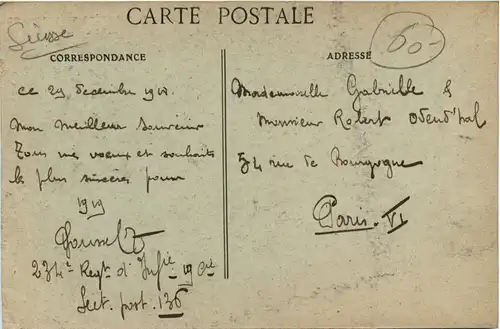 Suisse
60-
CARTE POSTALE
CORRESPONDANCE
ce 29 decembre 1918.
Mon meilleur souvenir
Tous mes voeux et souhaits
les plus sincères pour
1919
234e Regt. d' Infie 19 Cie
Sect. post. 136
ADRESSE
Mademoiselle Gabrielle &
Monsieur Robert Odend'hal
54 rue de Bourgogne
Paris. VI